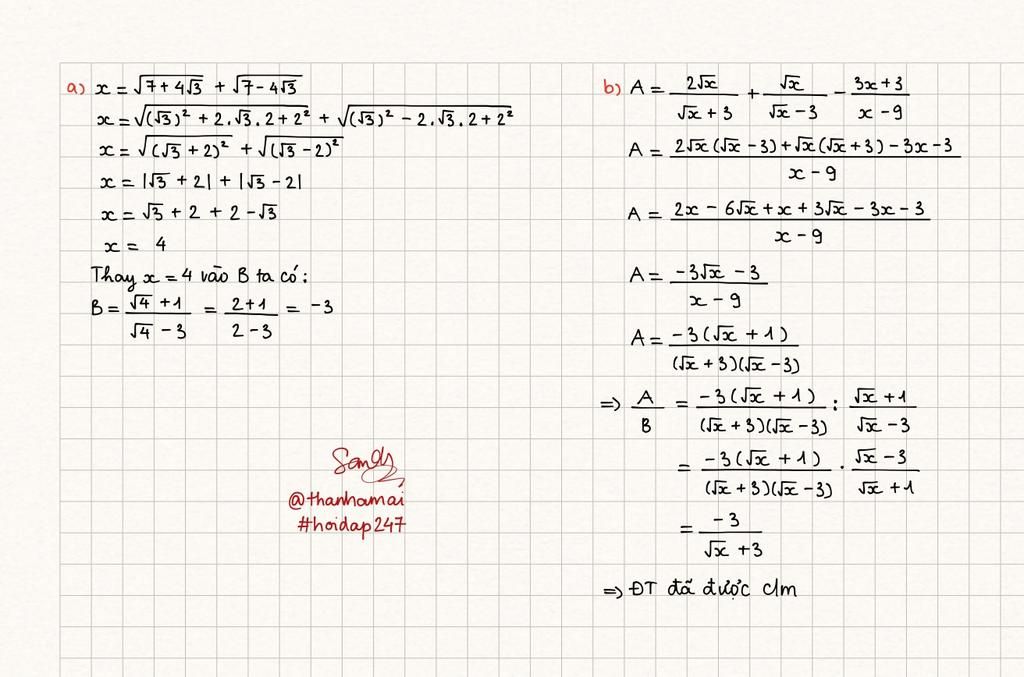 a) x = √(7 + 4√3) + √(7 - 4√3)
x = √((√3)² + 2.√3.2 + 2²) + √((√3)² - 2.√3.2 + 2²)
x = √((√3 + 2)²) + √((√3 - 2)²)
x = |√3 + 2| + |√3 - 2|
x = √3 + 2 + 2 - √3
x = 4
Thay x = 4 vào B ta có:
B = (√4 + 1)/(√4 - 3) = (2 + 1)/(2 - 3) = -3
Sandy
@thanhamai
#hoidap247
b) A = 2√x/(√x + 3) + √x/(√x - 3) - (3x + 3)/(x - 9)
A = (2√x(√x - 3) + √x(√x + 3) - 3x - 3)/(x - 9)
A = (2x - 6√x + x + 3√x - 3x - 3)/(x - 9)
A = (-3√x - 3)/(x - 9)
A = -3(√x + 1)/((√x + 3)(√x - 3))
=> A/B = -3(√x + 1)/((√x + 3)(√x - 3)) : (√x + 1)/(√x - 3)
= -3(√x + 1)/((√x + 3)(√x - 3)) . (√x - 3)/(√x + 1)
= -3/(√x + 3)
=> ĐT đã được c/m